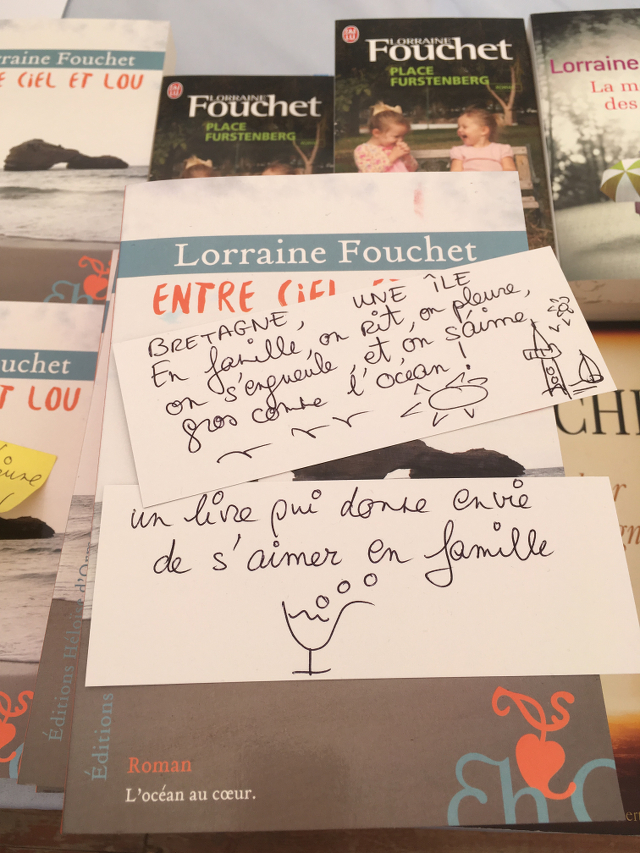 Lorraine Fouchet
E CIEL ET LOU
LORRAINE
Fouchet
PLACE
FURSTENBERG
LORRAINE
Fouchet
PLACE
FURSTENBERG
ROMAN
Lorraine
La m
des
Lorraine Fouchet
ENTRE CIEL E
BRETAGNE, UNE ÎLE
En famille, on rit, on pleure,
on s'engueule et on s'aime
gros comme l'océan !
un livre qui donne envie
de s'aimer en famille
Roman
L'océan au cœur.
Éditions
Éditions Héloïse d'O
ouchet
T LOU
CH